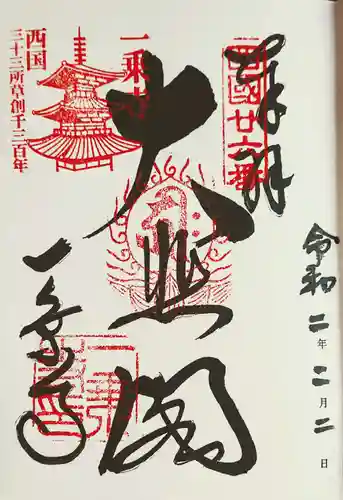 奉拝
西國廿六番
令和二年二月二日
大悲閣
一乗寺
西国
三十三所草創千三百年
一乗寺